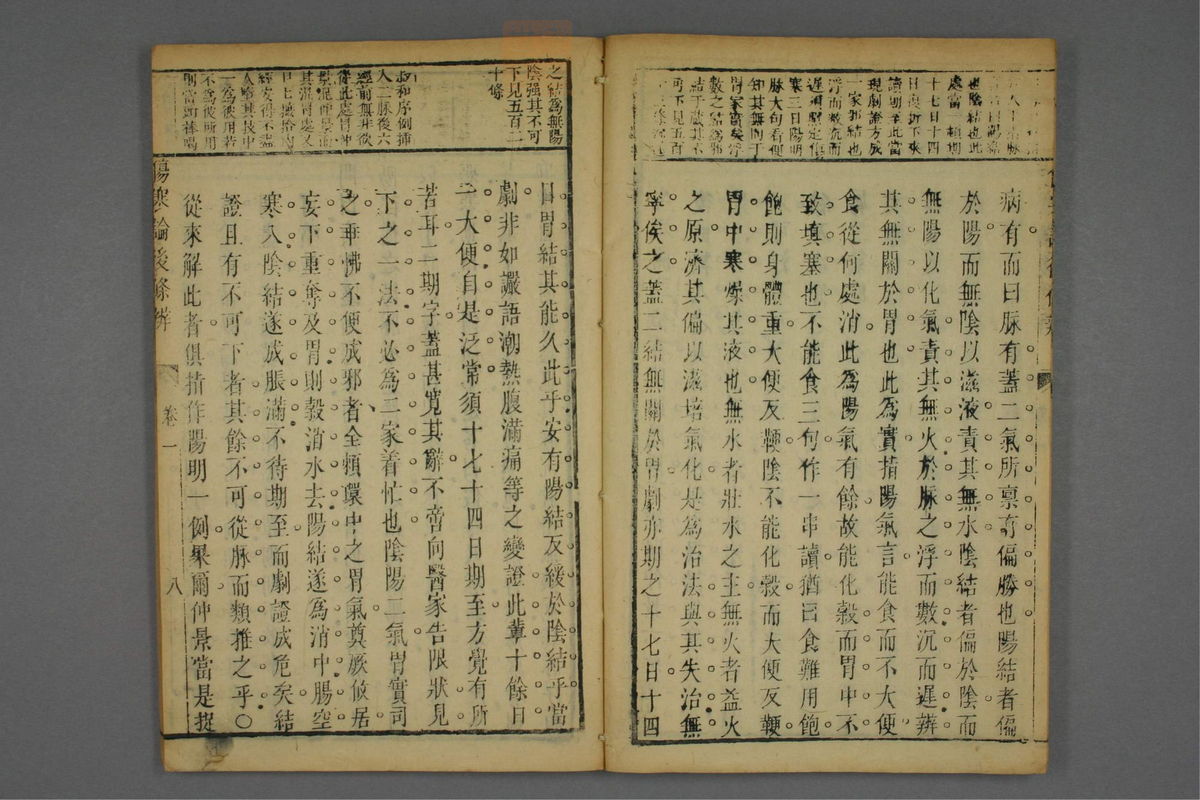 病有而曰脉有蓋二氣所禀有偏勝也陽結者偏
於陽而無陰以滋液責其無水陰結者偏於陰而
無陽以化氣責其無火於脉之浮而數沉而遲辨
其無關於胃也此為實指陽氣言能食而不大便
食從何處消此為陽氣有餘故能化穀而胃中不
致填塞也不能食三句作一串讀猶曰食難用飽
飽則身體重大便反鞕陰不能化穀而大便反鞕
胃中寒燥其液也無水者壯水之主無火者益火
之原濟其偏以滋培氣化是為治法與其失治無
寧俟之蓋二結無關於胃劇亦期之十七日十四
也陰結也此
處當一頓期
十七日十四
讀期至此當
現劇證方成
一家邪結也
浮而數沉而
寒三日陽明
脉大句看便
知其無関于
數之結為邪
可下見五百
日胃結其能久此乎安有陽結反緩於陰結乎當
劇非如讝語潮熱腹滿痛等之變證此輩十餘日
一大便自是泛常須十七十四日期至方覺有所
苦耳二期字蓋甚寬其辭不啻向醫家告限狀見
下之一法不必為二家着忙也陰陽二氣胃實司
之乖怫不便成邪者全頼𮝶中之胃氣奠厥攸居
妄下重奪及胃則穀消水去陽結遂為消中腸空
寒入陰結遂成脹滿不待期至而劇證成危矣結
證且有不可下者其餘不可從脉而類推之乎〇
從來解此者俱指作陽明一例果爾仲景當是捉
之結為無陽
陰强其不可
下見五百二
十條
叔和序例揷
入二脉後六
經前無非欲
一為彼用若
不為彼所用
明當頭棒喝
傷寒論後條辨
卷一
八